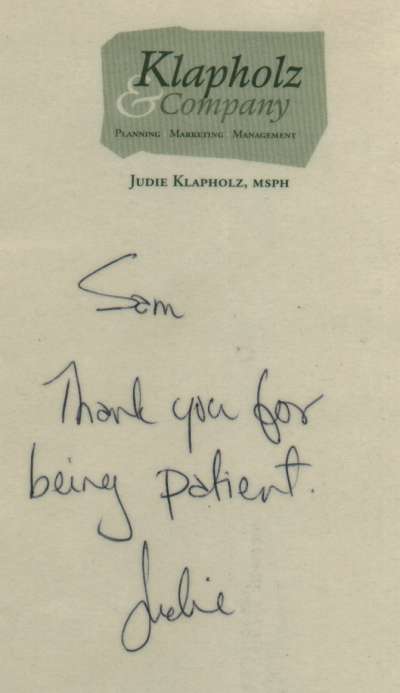 Klapholz
& Company
PLANNING MARKETING MANAGEMENT
JUDIE KLAPHOLZ, MSPH
Sam
Thank you for
being patient.
Judie